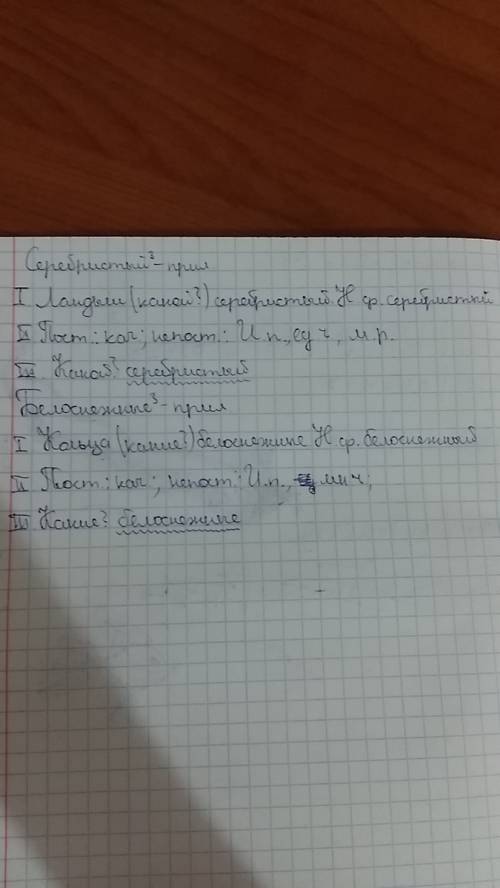 Серебристый³ - прил
I Ландыш (какой?) серебристый. Н ф. серебристый
II Пост.: кач; непост.: И.п., ед ч, м.р.
III Какой? серебристый
Белоснежные³ - прил
I Кольца (какие?) белоснежные Н ф. белоснежный
II Пост.: кач; непост.: И.п., мн ч;
III Какие? белоснежные